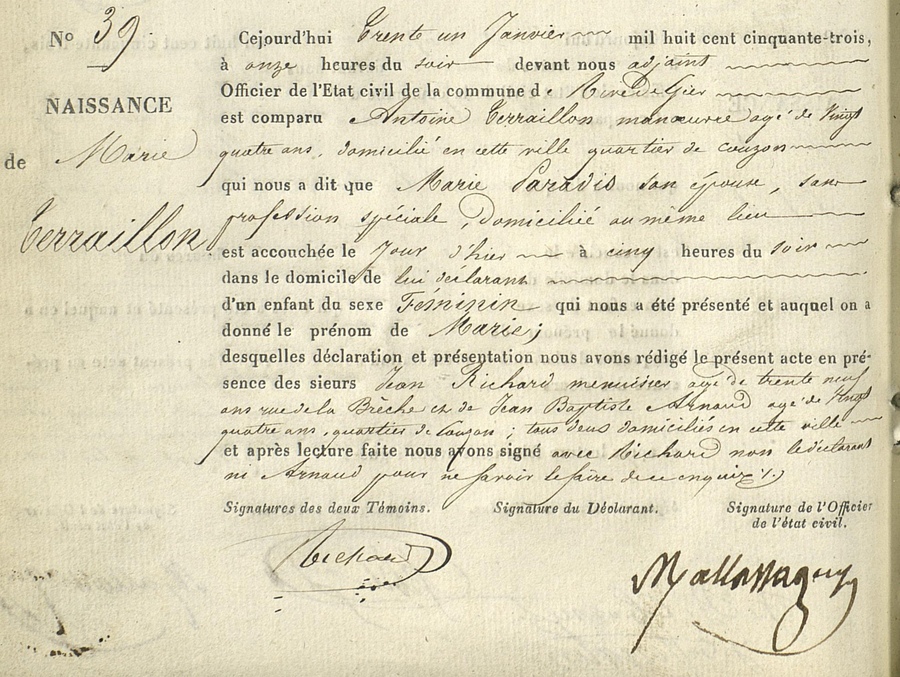 No 39
NAISSANCE
de Marie
Terraillon
Cejourd'hui Trente un Janvier mil huit cent cinquante-trois,
à onze heures du soir devant nous adjoint
Officier de l'Etat civil de la commune de Rive de Gier
est comparu Antoine Terraillon manœuvre agé de vingt
quatre ans, domicilié en cette ville quartier de couzon
qui nous a dit que Marie Paradis son épouse, sans
profession spéciale, Domiciliée au même lieu
est accouchée le Jour d'hier à cinq heures du soir
dans le domicile de lui déclarant
d'un enfant du sexe Féminin qui nous a été présenté et auquel on a
donné le prénom de Marie;
desquelles déclaration et présentation nous avons rédigé le présent acte en pré-
sence des sieurs Jean Richard menuisier agé de trente neuf
ans rue de la Brèche et de Jean Baptiste Arnaud agé de vingt
quatre ans, quartier de Couzon; tous deux domiciliés en cette ville
et après lecture faite nous avons signé avec Richard non le déclarant
ni Arnaud pour ne savoir le faire de ce enquis
Signatures des deux Témoins. Signature du Déclarant. Signature de l'Officier
de l'état civil.
Richard